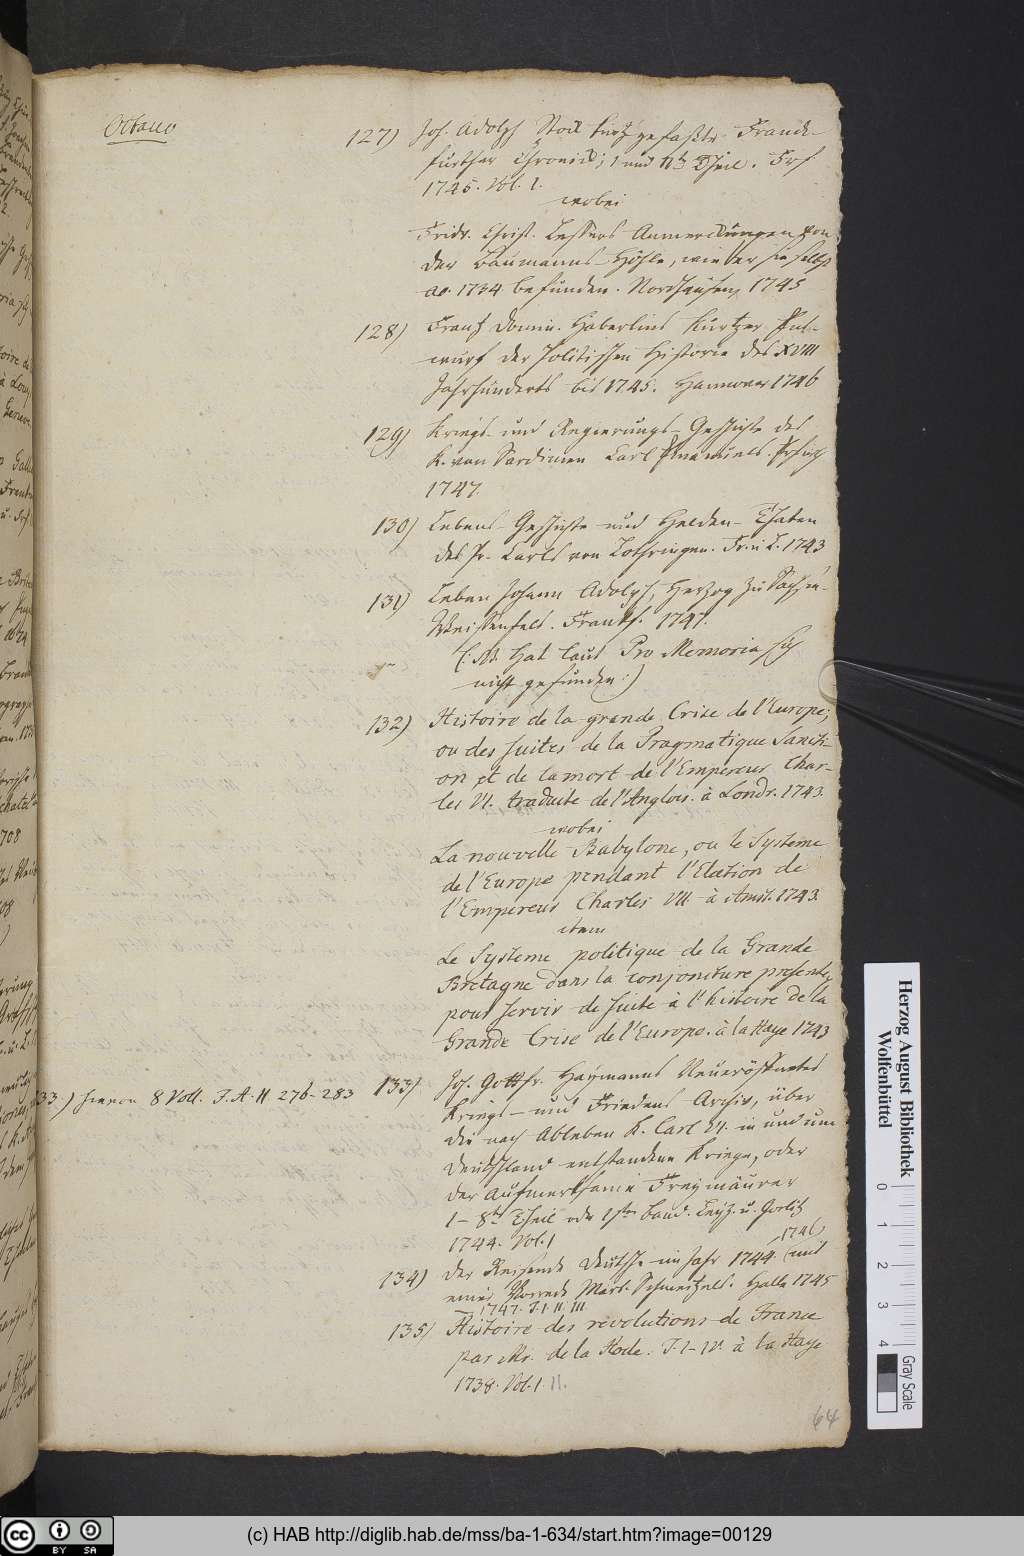 Octavo
127) Joh. Adolph Stock kurtz gefaßte Franck-
further Chronick; 1 und IIt Theil. Frf
1745. Vol. 1.
wobei
Fridr. Christ. Lessers Anmerckungen von
der Baumanns-Höhle, wie er sie selbst
ao. 1734 befunden. Nordhausen, 1745
128) Frantz Domin. Häberlins kurtzer Ent-
wurf der Politischen Historie des XVIII
Jahrhunderts bis 1745. Hannover 1746
129) Kriegs- und Regierungs-Geschichte des
K. von Sardinien Carl Emanuels.
1747.
130) Lebens-Geschichte und Helden-Thaten
des Pr. Carls von Lothringen. Fr. u. L. 1743
131) Leben Johann Adolph, Herzog zu Sachsen-
Weissenfels. Frankf. 1747.
(: NB. Hat laut Pro Memoria sich
nicht gefunden :)
132) Histoire de la grande Crise de l'Europe;
ou des suites de la Pragmatique Sancti-
on et de la mort de l'Empereur Char-
les VI. traduite de l'Anglois. à Londr. 1743.
wobei
La nouvelle Babylone, ou le Systeme
de l'Europe pendant l'Election de
l'Empereur Charles VII à Amst. 1743.
item
Le Systeme politique de la Grande
Bretagne dans la conjoncture presente,
pour servir de suite à l'histoire de la
Grande Crise de l'Europe. à la Haye 1743
133) Joh. Gottfr. Haymanns Neueröffnetes
Kriegs- und Friedens Archiv, über
die nach Ableben K. Carl VI. in und um
Deutschland entstandene Kriege, oder
der Aufmerksame Freymäurer
1-8te Theil oder 1ster Band. Leipz. u. Gorlitz
1744. Vol. 1
33.) hievon 8 Voll. T. A. H 276-283
134) Der Reisende Deutsche im Jahr 1744. (und 1746)
einer Vorrede Mart. Schmeitzels. Halle 1745
1747. T. I. II. III.
135) Histoire des revolutions de France
par Mr. de la Hode. T. I-IV. à la Haye
1738. Vol. 1 II.
64
Herzog August Bibliothek
Wolfenbüttel
0 1 2 3 4
Gray Scale
BY SA
(c) HAB http://diglib.hab.de/mss/ba-1-634/start.htm?image=00129